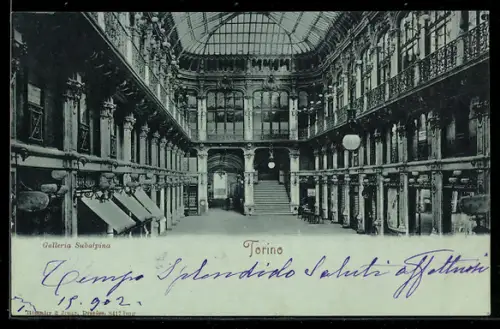 Galleria Subalpina
Torino
Tempo Splendido Saluti affettuosi
15.902.
Stengel & Co., Dresden